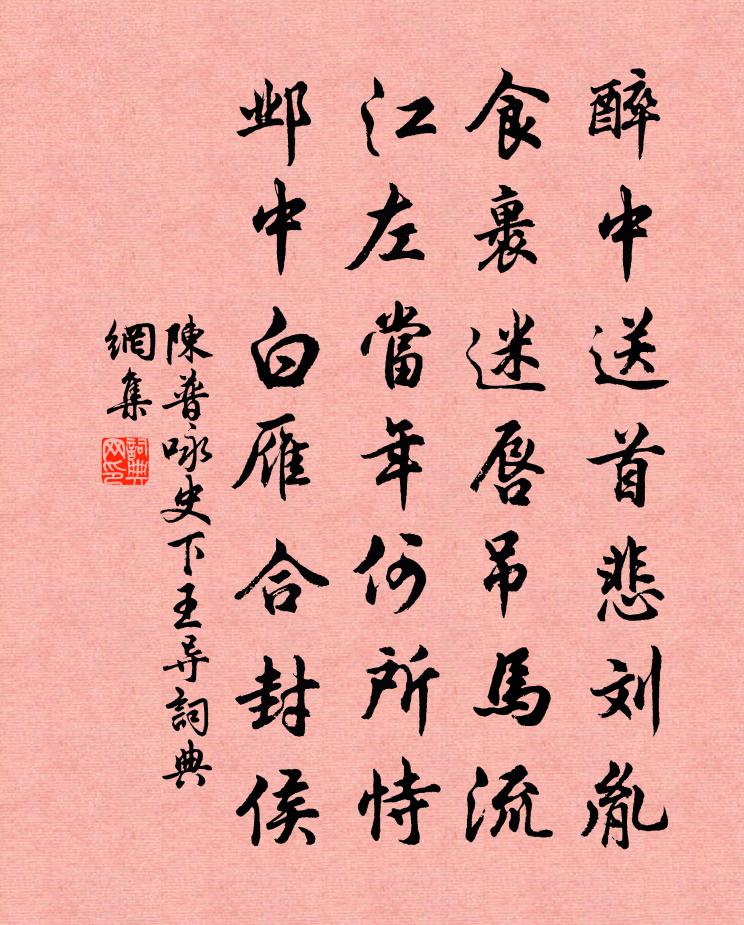 醉中送首悲刘胤
食裏迷唇吊馬流
江左當年何所恃
邺中白雁合封侯
陳普咏史下王导詞典
網集
詞典網印